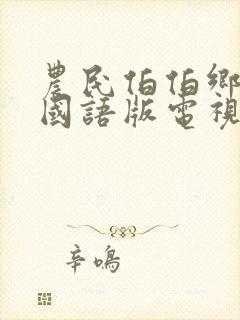 農民伯伯鄉
國語版電視
辛鳴